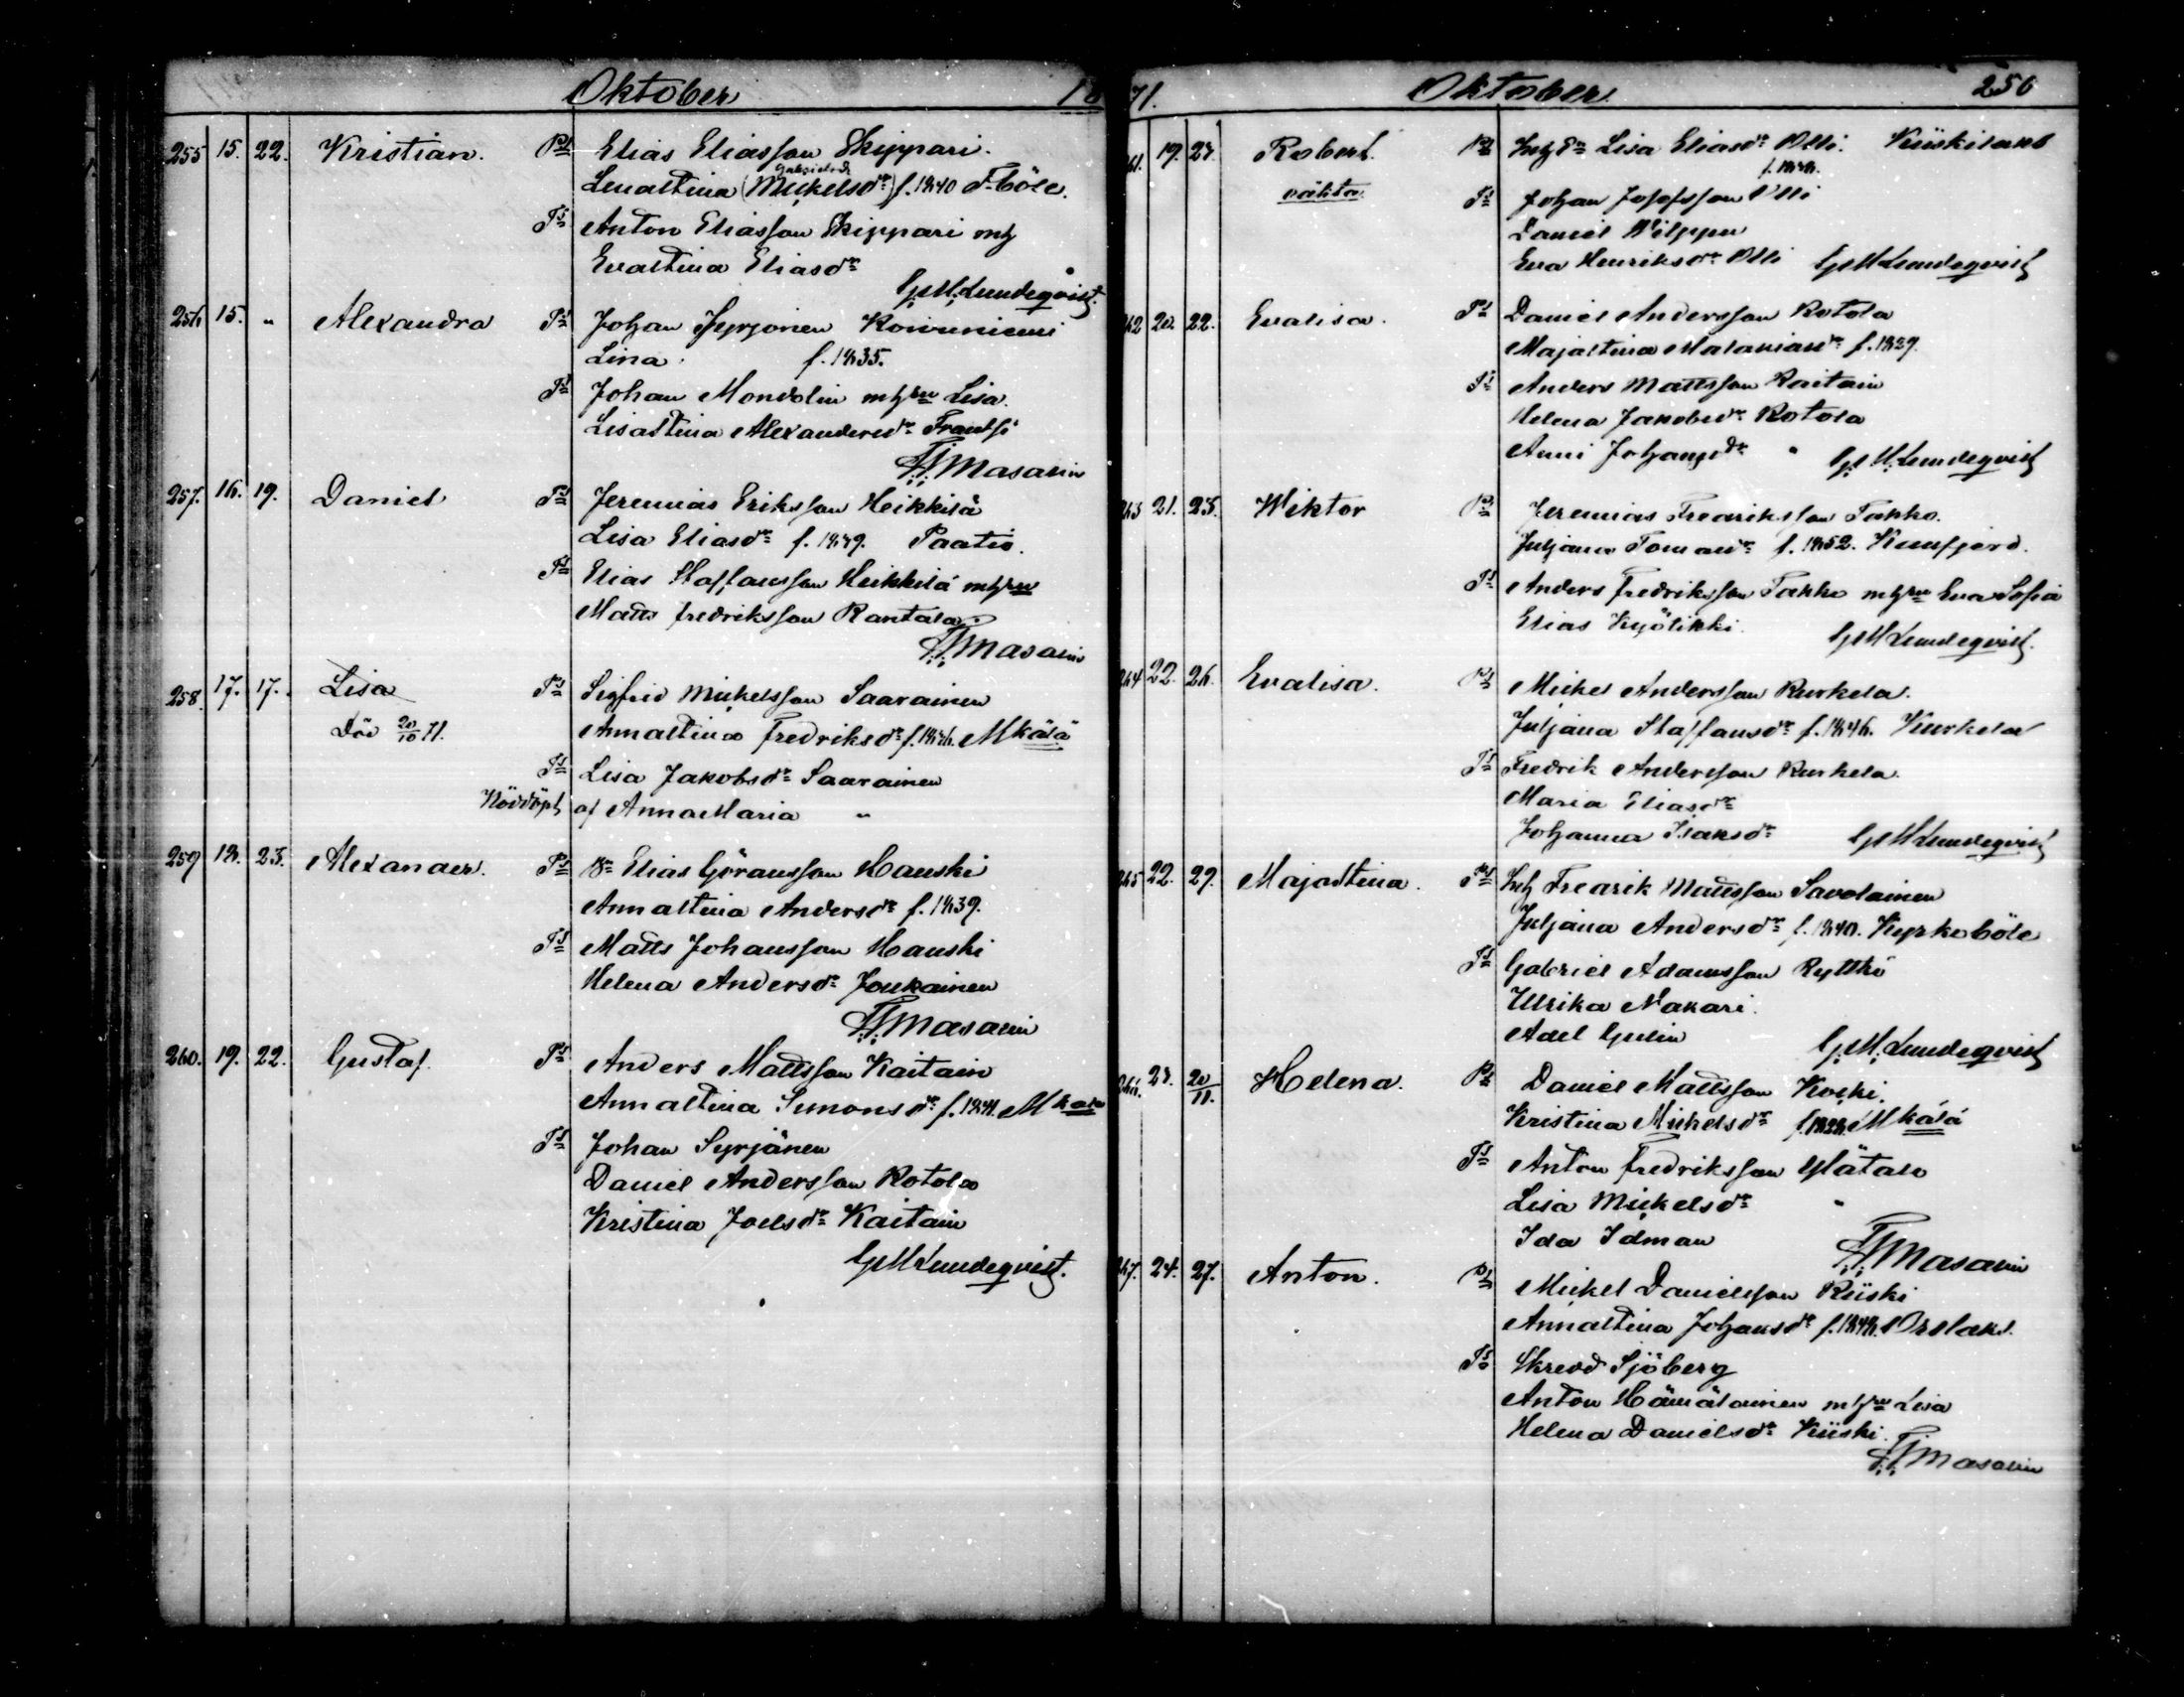 Oktober 18
255 15. 22. Kristian. Ps Elias Eliasson Skippari.
Gabrielsdr
Lenastina (Mickelsdr) f. 1840 F-böle.
Ts Anton Eliasson Skippari mh
Evastina Eliasdr
G.M.Lundeqvist.
256 15. " Alexandra Ps Johan Syrjonen Koivuniemi
Lina. f. 1835.
Ts Johan Mondolin mhru Lisa.
Lisastina Alexandersdr Frantsi
Masalin
257. 16. 19. Daniel Ps Jeremias Eriksson Heikkilä
Lisa Eliasdr f. 1849. Paatio.
Ts Elias Staffansson Heikkilä mhru
Matts Fredriksson Rantala.
Masalin
258. 17. 17. Lisa Ps Sigfrid Mickelsson Saarainen
Död 20/10 71. Annastina Fredriksdr f. 1846. Mkälä
Ts Lisa Jakobsdr Saarainen
Nöddöpt af AnnaMaria "
259 18. 23. Alexander. Ps Bn Elias Göransson Hauski
Annastina Andersdr f. 1839.
Ts Matts Johansson Hauski
Helena Andersdr Joukainen
Masalin
260. 19. 22. Gustaf. Ps Anders Mattsson Kaitain
Annastina Simonsdr f. 1841. Mkälä
Ts Johan Syrjänen
Daniel Andersson Rotola
Kristina Joelsdr Kaitain
G.M.Lundeqvist.
71. Oktober. 256
61. 19. 23. Robert. Ps Inhdr Lisa Eliasdr Olli. Kiiskilaks
oäkta
Ts Johan Josefsson Olli
Daniel Wilppu
Eva Henriksdr Olli G.M.Lundeqvist
62 20. 22. Evalisa. Ps Daniel Andersson Rotola
Majastina Malakiasdr f. 1829.
Ts Anders Mattsson Kaitain
Helena Jakobsdr Rotola
Anni Johansdr " G.M.Lundeqvist
263 21. 25. Wiktor Ps Jeremias Fredriksson Takko.
Juljana Tomasdr f. 1852.
Ts Anders Fredriksson Takko mhru Eva Sofia
Elias Kyölikki. G.M.Lundeqvist.
264 22. 26. Evalisa. Ps Mickel Andersson Kurkela.
Juljana Staffansdr f. 1846. Kurkela
Ts Fredrik Andersson Kurkela.
Maria Eliasdr
Johanna Isaksdr G.M.Lundeqvist
265 22. 29. Majastina. Ps Inh Fredrik Mattsson Savolainen
Juljana Andersdr f. 1840. Kyrkoböle
Ts Gabriel Adamsson Ryttki
Ulrika Nakari.
Adel Gulin G.M.Lundeqvist
266. 23. 20/11. Helena. Ps Daniel Mattsson Koski.
Kristina Mickelsdr f. 1828. Mkälä
Ts Anton Fredriksson Mätalo
Lisa Mickelsdr "
Ida Idman Masalin
267. 24. 27. Anton. Ps Mickel Danielsson Kiiski
Annastina Johansdr f. 1848. Orslaks.
Ts Skredd Sjöberg
Anton Hämäläinen mhru Lisa
Helena Danielsdr Kiiski.
Masalin